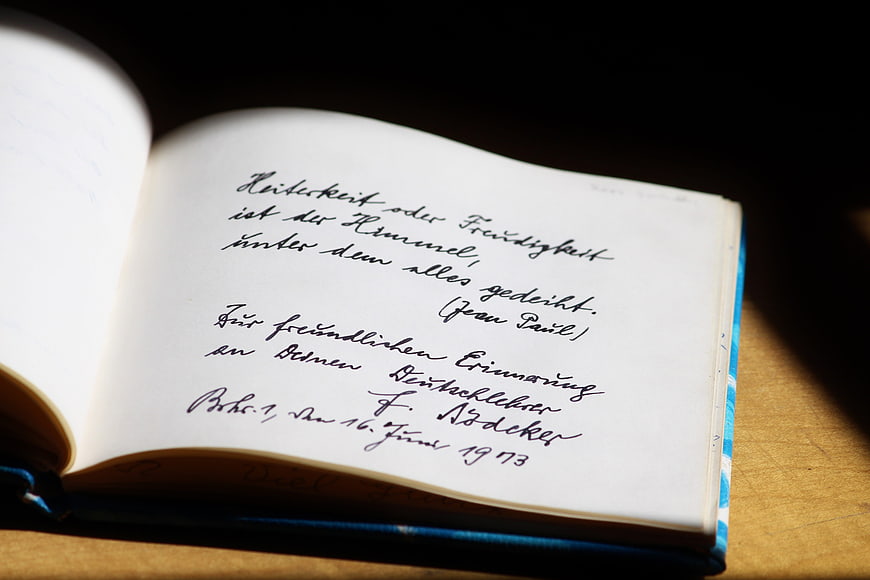 Heiterkeit oder Freudigkeit
ist der Himmel,
unter dem alles gedeiht.
(Jean Paul)
Zur freundlichen Erinnerung
an Deinen Deutschlehrer
F.
Bchr. 1, den 16. Juni 1973